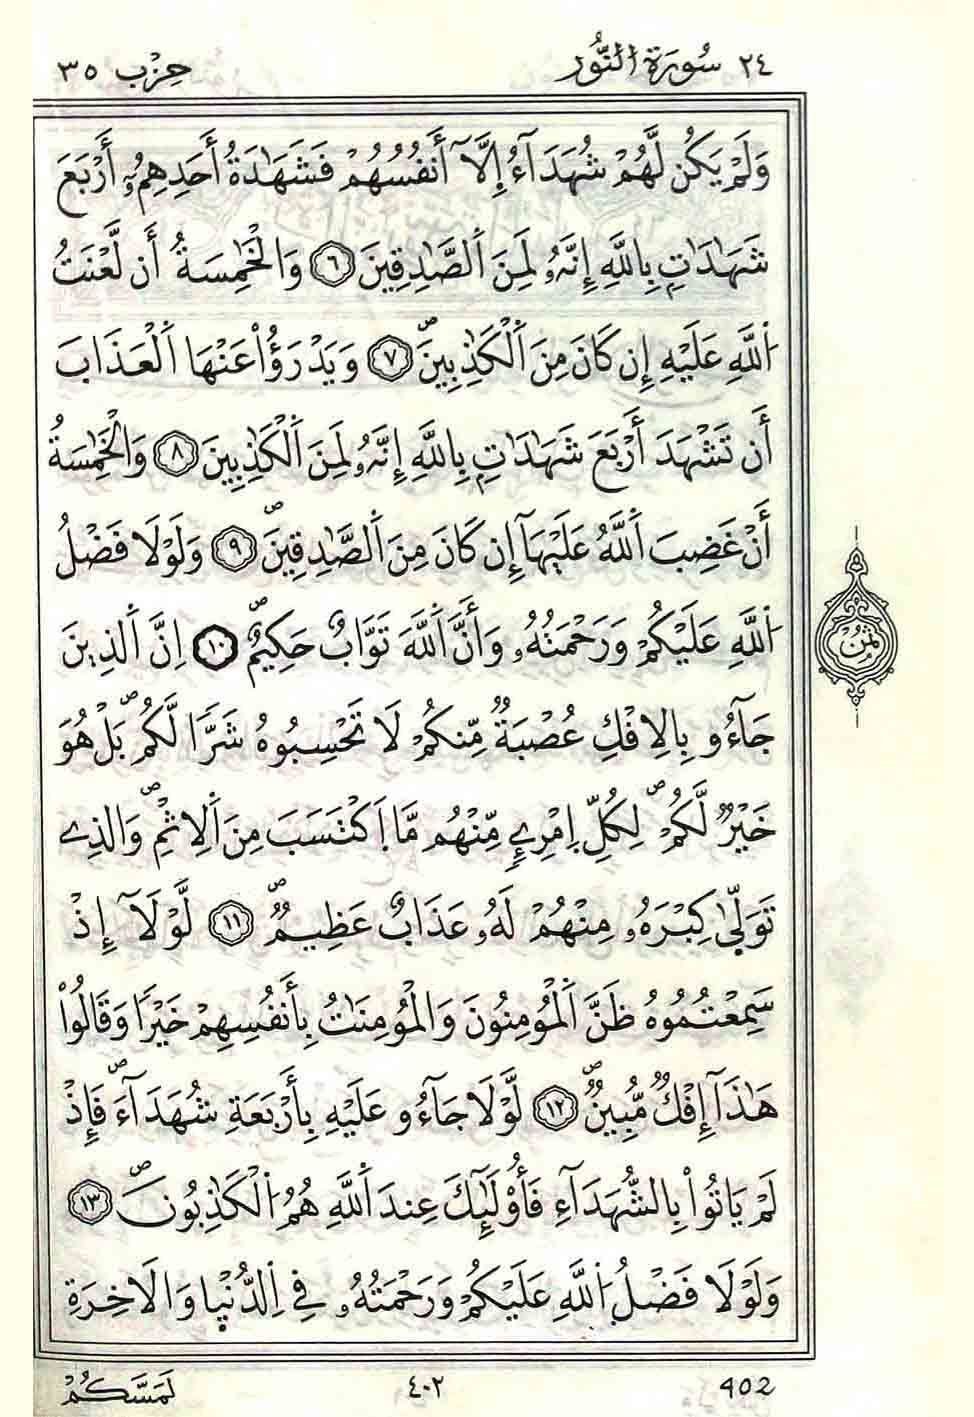 ٢٤ سُورَةُ النُّور حِزْب ٣٥
وَلَمْ يَكُن لَّهُمْ شُهَدَآءُ إِلَّآ أَنفُسُهُمْ فَشَهَٰدَةُ أَحَدِهِمُۥٓ أَرْبَعَ
شَهَٰدَٰتِۭ بِاللَّهِ إِنَّهُۥ لَمِنَ اَلصَّٰدِقِينَ ٦ وَالْخَٰمِسَةُ أَن لَّعْنَتُ
اُللَّهِ عَلَيْهِ إِن كَانَ مِنَ اَلْكَٰذِبِينَۖ ٧ وَيَدْرَؤُاْ عَنْهَا اَلْعَذَابَ
أَن تَشْهَدَ أَرْبَعَ شَهَٰدَٰتِۭ بِاللَّهِ إِنَّهُۥ لَمِنَ اَلْكَٰذِبِينَ ٨ وَالْخَٰمِسَةُ
أَنْ غَضِبَ اَللَّهُ عَلَيْهَآ إِن كَانَ مِنَ اَلصَّٰدِقِينَۖ ٩ وَلَوْلَا فَضْلُ
اُللَّهِ عَلَيْكُمْ وَرَحْمَتُهُۥ وَأَنَّ اَللَّهَ تَوَّابٌ حَكِيمٌۖ ١٠ اِنَّ اَلذِينَ
جَآءُو بِالِافْكِ عُصْبَةٌ مِّنكُمْ لَا تَحْسِبُوهُ شَرّاً لَّكُمۖ بَلْ هُوَ
خَيْرٌ لَّكُمْۖ لِكُلِّ اِمْرِےٕٖ مِّنْهُم مَّا اَكْتَسَبَ مِنَ اَلِاثْمِۖ وَالذِے
تَوَلَّىٰ كِبْرَهُۥ مِنْهُمْ لَهُۥ عَذَابٌ عَظِيمٌۖ ١١ لَّوْلَآ إِذْ
سَمِعْتُمُوهُ ظَنَّ اَلْمُؤْمِنُونَ وَالْمُؤْمِنَٰتُ بِأَنفُسِهِمْ خَيْراً وَقَالُواْ
هَٰذَآ إِفْكٌ مُّبِينٌۖ ١٢ لَّوْلَا جَآءُو عَلَيْهِ بِأَرْبَعَةِ شُهَدَآءَۖ فَإِذْ
لَمْ يَاتُواْ بِالشُّهَدَآءِ فَأُوْلَٰٓئِكَ عِندَ اَللَّهِ هُمُ اُلْكَٰذِبُونَۖ ١٣
وَلَوْلَا فَضْلُ اُللَّهِ عَلَيْكُمْ وَرَحْمَتُهُۥ فِے اِلدُّنْيا وَالَاخِرَةِ
ثُمُنْ
402 ٤٠٢ لَمَسَّكُمْ